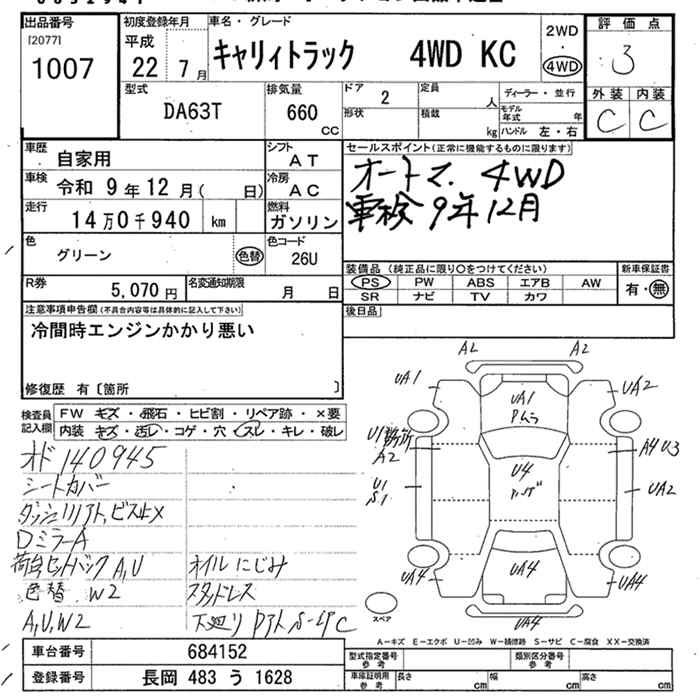 出品番号
[2077]
1007
初度登録年月
平成
22 7月
車名・グレード
キャリィトラック 4WD KC
2WD
・
4WD
評価点
3
外装 内装
C C
型式
DA63T
排気量
660
CC
ドア 2
形状
定員
人
積載
kg
ディーラー・並行
モデル年式 年
ハンドル 左・右
車歴
自家用
シフト
AT
車検 令和 9年12月( 日)
冷房
AC
走行
14万0千940 km
燃料
ガソリン
色
グリーン
色替
色コード
26U
R券
5,070円
名変通知期限
月 日
セールスポイント(正常に機能するものに限ります)
オートマ. 4WD
車検 9年12月
装備品 (純正品に限り○をつけてください)
PS PW ABS エアB AW
SR ナビ TV カワ
新車保証書
有・無
後日品
注意事項申告欄(不具合内容等は具体的に記入して下さい)
冷間時エンジンかかり悪い
修復歴 有〔箇所 〕
検査員記入欄
FW キズ・飛石・ヒビ割・リペア跡・×要
内装 キズ・汚レ・コゲ・穴・スレ・キレ・破レ
オド 140945
シートカバー
ダッシュリアト,ビス〆
Dミラー A
荷台セットバック A,U
色替 W2
A,U,W2
オイルにじみ
スタッドレス
下廻り
A2 A2
UA1
UA2
UA1
Pムラ
A2
A4 U3
U1
S1
U4
UA2
UA4
UA4
UA4
UA4
スペア
A-キズ E-エクボ U-凹み W-補修跡 S-サビ C-腐食 XX-交換済
車台番号 684152
登録番号 長岡 483 う 1628
型式指定番号
参考
類別区分番号
参考
車庫証明用
参考
長さ cm
幅 cm
高さ cm